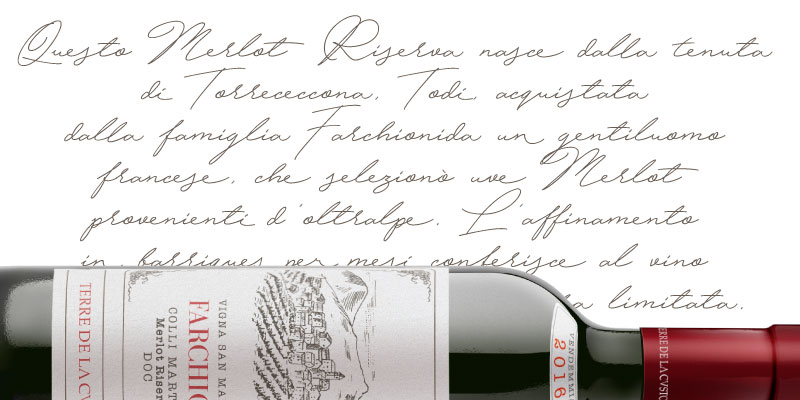 Questo Merlot Riserva nasce dalla tenuta
di Torrececcona, Todi, acquistata
dalla famiglia Farchionida un gentiluomo
francese, che selezionò uve Merlot
provenienti d'oltralpe. L'affinamento
in barriques per mesi conferisce al vino
limitata.
TERRE DE LA CV
VIGNA SAN MA
FARCHIO
COLLI MART
Merlot Riser
DOC
VENDEMMI
2016
TERRE DE LA CVSTO